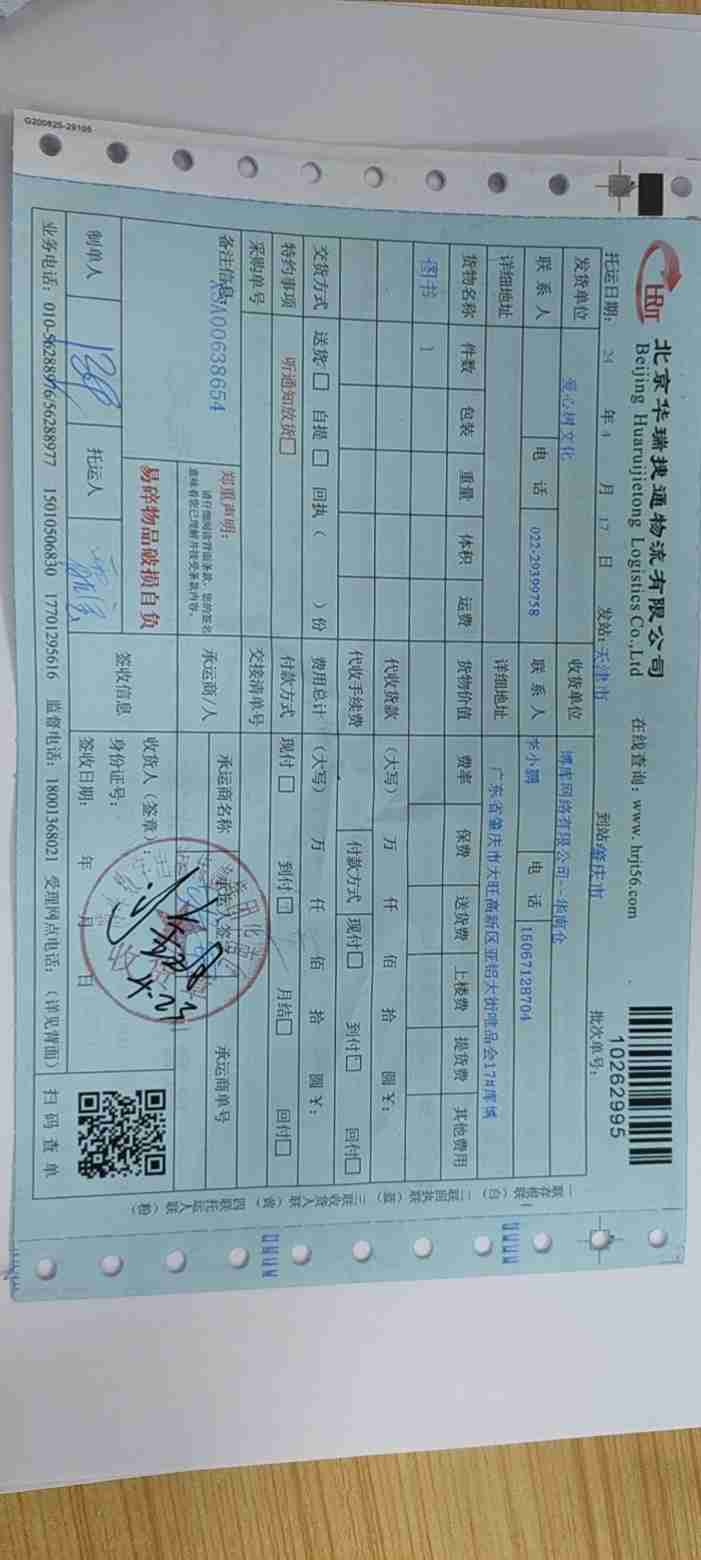 G200825-29105
北京华瑞捜通物流有限公司
Beijing Huaruijietong Logistics Co.,Ltd
在线查询：www.hrjt56.com
10262995
托运日期： 24 年 4 月 17 日 发站：天津市 到站 肇庆市 批次单号：
发货单位 爱心树文化 收货单位 博库网络有限公司--华南仓
联系人 电话 022-29399758 联系人 李小鹏 电话 15067128704
详细地址 详细地址 广东省肇庆市大旺高新区亚铝大街唯品会17#库博
货物名称 件数 包装 重量 体积 运费 货物价值 费率 保费 送货费 上楼费 提货费 其他费用
图书 1
代收货款 （大写） 万 仟 佰 拾 圆 ￥：
代收手续费 付款方式 现付□ 到付□ 回付□
交货方式 送货□ 自提□ 回执（ ）份 费用总计 （大写） 万 仟 佰 拾 圆 ￥：
特约事项 听通知放货□ 付款方式 现付□ 到付□ 月结□ 回付□
采购单号 交接清单号
备注信息 SA00638654
郑重声明：
请仔细阅读背面条款，您的签名
意味着您已理解并接受条款内容。
易碎物品破损自负
承运商/人 承运商名称 承运人签字 承运商单号
签收信息 收货人（签章）：
身份证号：
签收日期： 年 月 日
制单人 托运人
业务电话：010-56288976/56288977 15010506830 17701295616 监督电话：18001368021 受理网点电话：（详见背面） 扫码查单
一联存根联（白） 二联回执联（蓝） 三联收货人联（黄） 四联托运人联（粉）